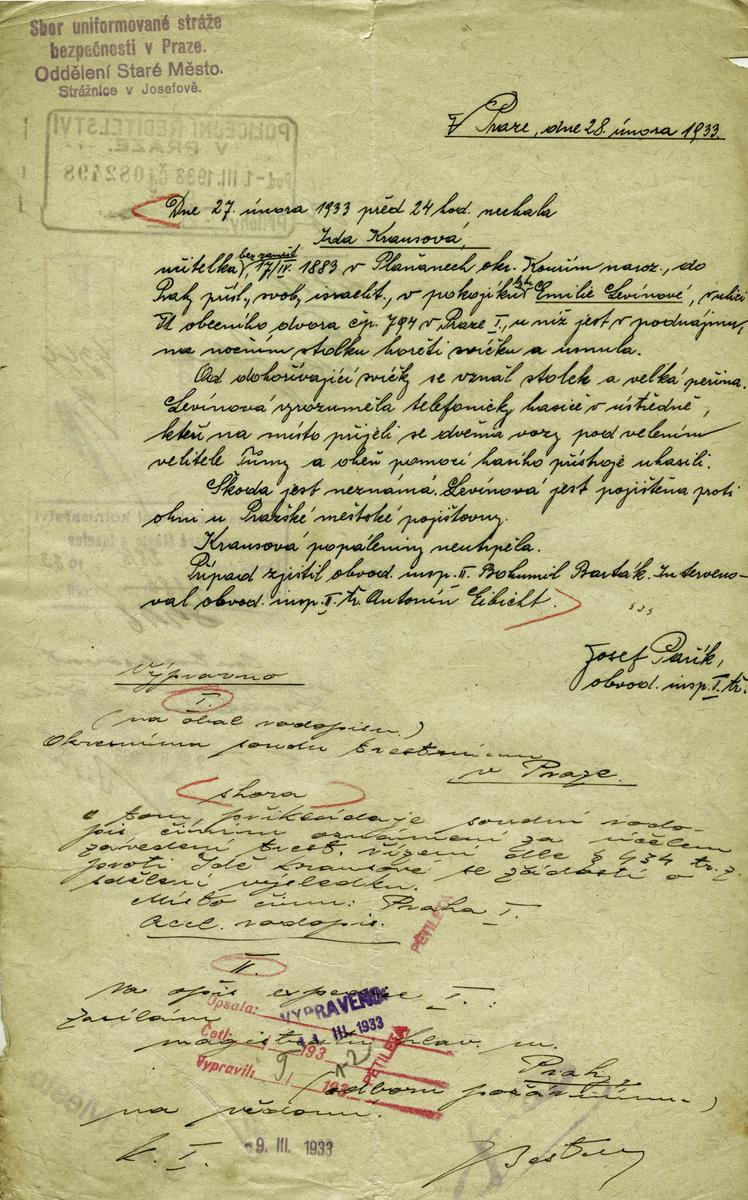 Sbor uniformované stráže
bezpečnosti v Praze.
Oddělení Staré Město.
Strážnice v Josefově.
POLICEJNÍ ŘEDITELSTVÍ
V PRAZE.
Pod. -1. III. 1933 Č. 082498
Přílohy
V Praze, dne 28. února 1933.
Dne 27. února 1933 před 24 hod. nechala
Irda Krausová,
učitelka, 17/IV. 1883 v Plaňanech okr. Kouřim naroz., do
Prahy přísl., svob., israelit., v pokojíku Emilie Levínové, v ulici
U obecního dvora čp. 794 v Praze I., u níž jest v podnájmu,
na nočním stolku hořeti svíčku a usnula.
Od dohořívající svíčky se vzňal stolek a velká peřina.
Levínová vyrozuměla telefonicky hasiče v ústředně,
kteří na místo přijeli se dvěma vozy pod velením
velitele Tůmy a oheň pomocí hasího přístroje uhasili.
Škoda jest neznámá, Levínová jest pojištěna proti
ohni u Pražské městské pojišťovny.
Krausová popáleniny neutrpěla.
Případ zjistil obvod. insp. II. Bohumil Barták. Interveno-
val obvod. insp. II. tř. Antonín Eibicht.
Josef Pařík,
obvod. insp. I. tř.
Výpravno
I.
(na obal vodopisu.)
Okresnímu soudu trestnímu
v Praze.
(shora)
o tom příkládaje soudní vodo-
pis činím oznámení za účelem
zavedení trest. řízení dle § 434 tr. z.
proti Idě Krausové se žádostí o
sdělení výsledku.
Místo činu: Praha I.
Accl. vodopis.
PĚTILETÁ
II.
Na opis expedice I.:
Zasílám
Opsala:
VYPRAVENO:
11. III. 1933
Četl: 193
magistrátu hlav. m.
Prahy
Vypravil: 193
PĚTILETÁ
(odboru požárnímu)
na vědomí.
k. I.
-9. III. 1933